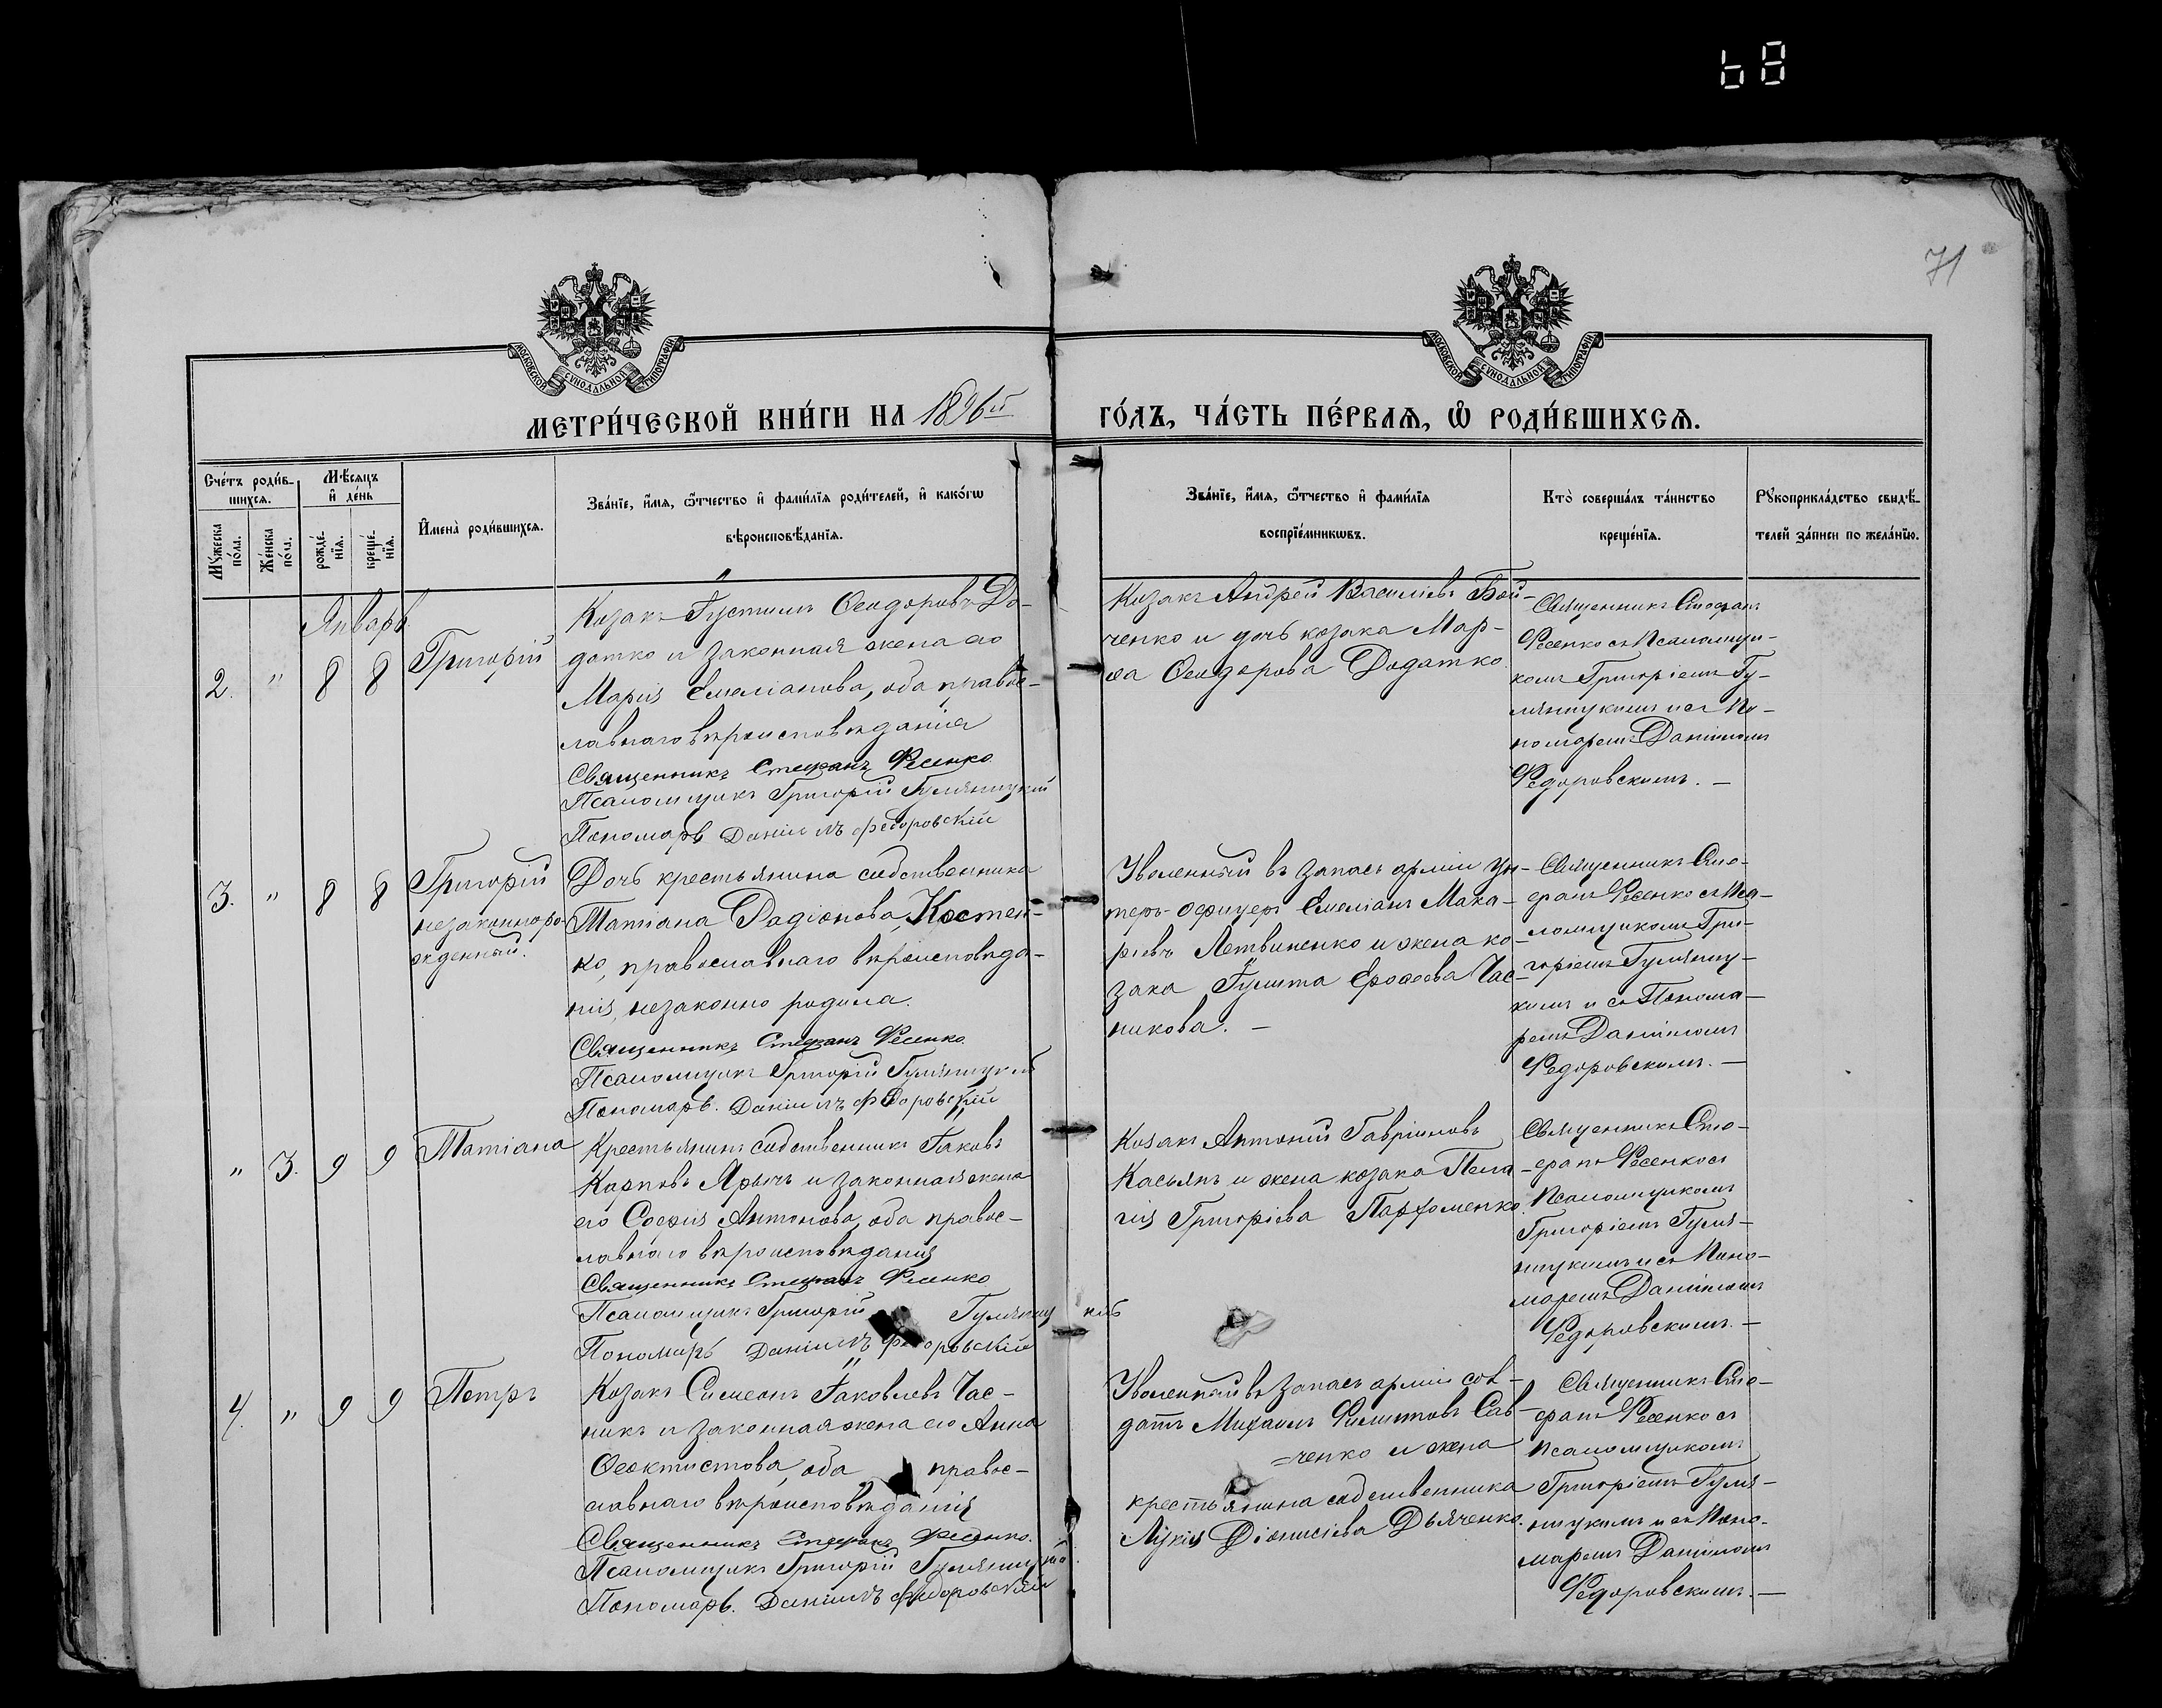 68
71
МОСКОВСКОЙ СѴНОДАЛЬНОЙ ТИПОГРАФІИ
МОСКОВСКОЙ СѴНОДАЛЬНОЙ ТИПОГРАФІИ
МЕТРИ́ЧЕСКОЙ КНИ́ГИ НА 1896й ГО́ДЪ, ЧА́СТЬ ПЕ́РВАѦ, Ѡ҆ РОДИ́ВШИХСѦ.
Сче́тъ роди́в-
шихсѧ.
Мꙋ́жеска
по́ла.
Же́нска
по́ла.
Мѣ́сѧцъ
и҆ де́нь
рожде́-
нїѧ.
креще́-
нїѧ.
И҆мена̀ роди́вшихсѧ.
Зва́нїе, и҆́мѧ, ѻ҆́тчество и҆ фами́лїѧ роди́телей, и҆ како́гѡ
вѣроисповѣ́данїѧ.
Зва́нїе, и҆́мѧ, ѻ҆́тчество и҆ фами́лїѧ
воспрїе́мникѡвъ.
Кто̀ соверша́лъ та́инство
креще́нїѧ.
Рꙋкоприкла́дство свидѣ́-
телей за́писи по жела́нїю.
Январь
2. " 8 8
Григорій
Козакъ Іустинъ Ѳеодоровъ До-
датко и законная жена его
Марія Емеліанова, оба правос-
лавнаго вѣроисповѣданія
Священникъ Стефанъ Фесенко
Псаломщикъ Григорій Гуляницкій
Пономарь Даніилъ Федоровскій
Козакъ Андрей Василіевъ Бой-
ченко и дочь козака Мар-
ѳа Ѳеодорова Додатко.
Священникъ Стефанъ
Фесенко съ Псаломщи-
комъ Григоріемъ Гу-
ляницкимъ и съ По-
номаремъ Даніиломъ
Федоровскимъ. —
3. " 8 8
Григорій
незаконноро-
жденный.
Дочь крестьянина собственника
Татіана Радіонова Костен-
ко, православнаго вѣроисповѣда-
нія, незаконно родила.
Священникъ Стефанъ Фесенко
Псаломщикъ Григорій Гуляницкій
Пономарь. Даніилъ Федоровскій
Уволенный въ запасъ арміи ун-
теръ-офицеръ Емеліанъ Мака-
ріевъ Летвиненко и жена ко-
зака Іулита Ероѳеева Час-
никова. —
Священникъ Сте-
фанъ Фесенко съ Пса-
ломщикомъ Гри-
горіемъ Гуляниц-
кимъ и съ Понома-
ремъ Даніиломъ
Федоровскимъ. —
" 3. 9 9
Татіана
Крестьянинъ собственникъ Іаковъ
Карповъ Ярычъ и законная жена
его Софія Антонова, оба правос-
лавнаго вѣроисповѣданія
Священникъ Стефанъ Фесенко
Псаломщикъ Григорій Гуляницкій
Пономарь Даніилъ Федоровскій
Козакъ Антоній Гавріиловъ
Касьянъ и жена козака Пела-
гія Григоріева Парфоменко.
Священникъ Сте-
фанъ Фесенко съ
Псаломщикомъ
Григоріемъ Гуля-
ницкимъ и съ Поно-
маремъ Даніиломъ
Федоровскимъ. —
4. " 9 9
Петръ
Козакъ Симеонъ Іаковлевъ Час-
никъ и законная жена его Анна
Ѳеоктистова, оба правос-
лавнаго вѣроисповѣданія
Священникъ Стефанъ Фесенко.
Псаломщикъ Григорій Гуляницкій.
Пономарь. Даніилъ Федоровскій
Уволенный въ запасъ арміи сол-
датъ Михаилъ Филиповъ Сав-
=ченко и жена
крестьянина собственника
Лукія Діонисіева Дьяченко.
Священникъ Сте-
фанъ Фесенко съ
Псаломщикомъ
Григоріемъ Гуля-
ницкимъ и съ Поно-
маремъ Даніиломъ
Федоровскимъ. —